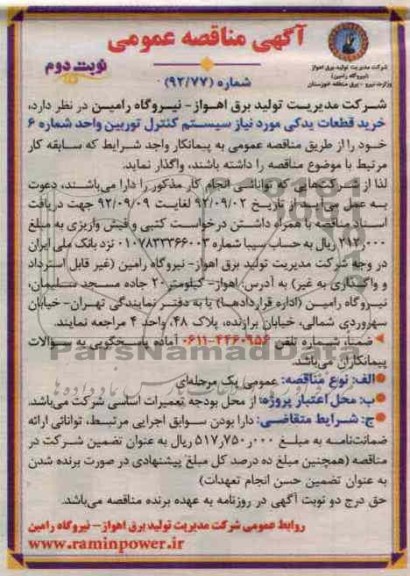 آگهی مناقصه عمومی
شرکت مدیریت تولید برق اهواز
(نیروگاه رامین)
وزارت نیرو - برق منطقه خوزستان
نوبت دوم
شماره (۹۲/۷۷)
شرکت مدیریت تولید برق اهواز- نیروگاه رامین در نظر دارد،
خرید قطعات یدکی مورد نیاز سیستم کنترل توربین واحد شماره ۶
خود را از طریق مناقصه عمومی به پیمانکار واجد شرایط که سابقه کار
مرتبط با موضوع مناقصه را داشته باشند، واگذار نماید.
لذا از شرکت‌هایی که توانائی انجام کار مذکور را دارا می‌باشند، دعوت
به عمل می‌آید از تاریخ ۹۲/۰۹/۰۲ لغایت ۹۲/۰۹/۰۹ جهت دریافت
اسناد مناقصه با همراه داشتن درخواست کتبی و فیش واریزی به مبلغ
۲۱۲٫۰۰۰ ریال به حساب سیبا شماره ۰۱۰۷۸۳۳۳۶۶۰۰۳ نزد بانک ملی ایران
در وجه شرکت مدیریت تولید برق اهواز- نیروگاه رامین (غیر قابل استرداد
و واگذاری به غیر) به آدرس: اهواز- کیلومتر ۲۰ جاده مسجد سلیمان،
نیروگاه رامین (اداره قراردادها) یا به دفتر نمایندگی تهران- خیابان
سهروردی شمالی، خیابان برازنده، پلاک ۴۸، واحد ۴ مراجعه نمایند.
ضمناً، شماره تلفن ۴۴۶۰۹۵۶-۰۶۱۱ آماده پاسخگویی به سؤالات
پیمانکاران می‌باشد.
الف: نوع مناقصه: عمومی یک مرحله‌ای
ب: محل اعتبار پروژه: از محل بودجه تعمیرات اساسی شرکت می‌باشد.
ج: شرایط متقاضی: دارا بودن سوابق اجرایی مرتبط، توانائی ارائه
ضمانت‌نامه به مبلغ ۵۱۷٫۷۵۰٫۰۰۰ ریال به عنوان تضمین شرکت در
مناقصه (همچنین مبلغ ده درصد کل مبلغ پیشنهادی در صورت برنده شدن
به عنوان تضمین حسن انجام تعهدات)
حق درج دو نوبت آگهی در روزنامه به عهده برنده مناقصه می‌باشد.
روابط عمومی شرکت مدیریت تولید برق اهواز- نیروگاه رامین
www.raminpower.ir
ParsNamadData